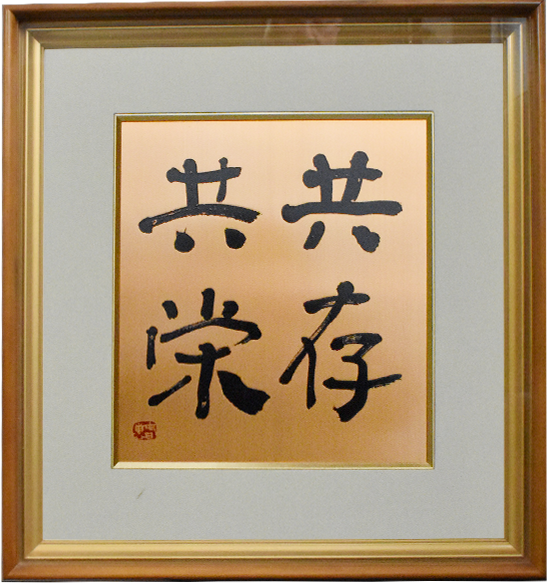 共存
共栄